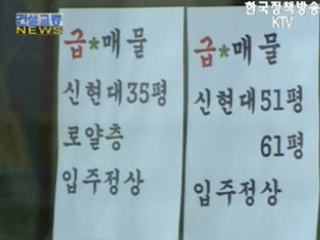 건설교통
NEWS
한국정책방송
KTV
급*매물
신현대35평
로얄층
입주정상
급*매물
신현대51평
61평
입주정상